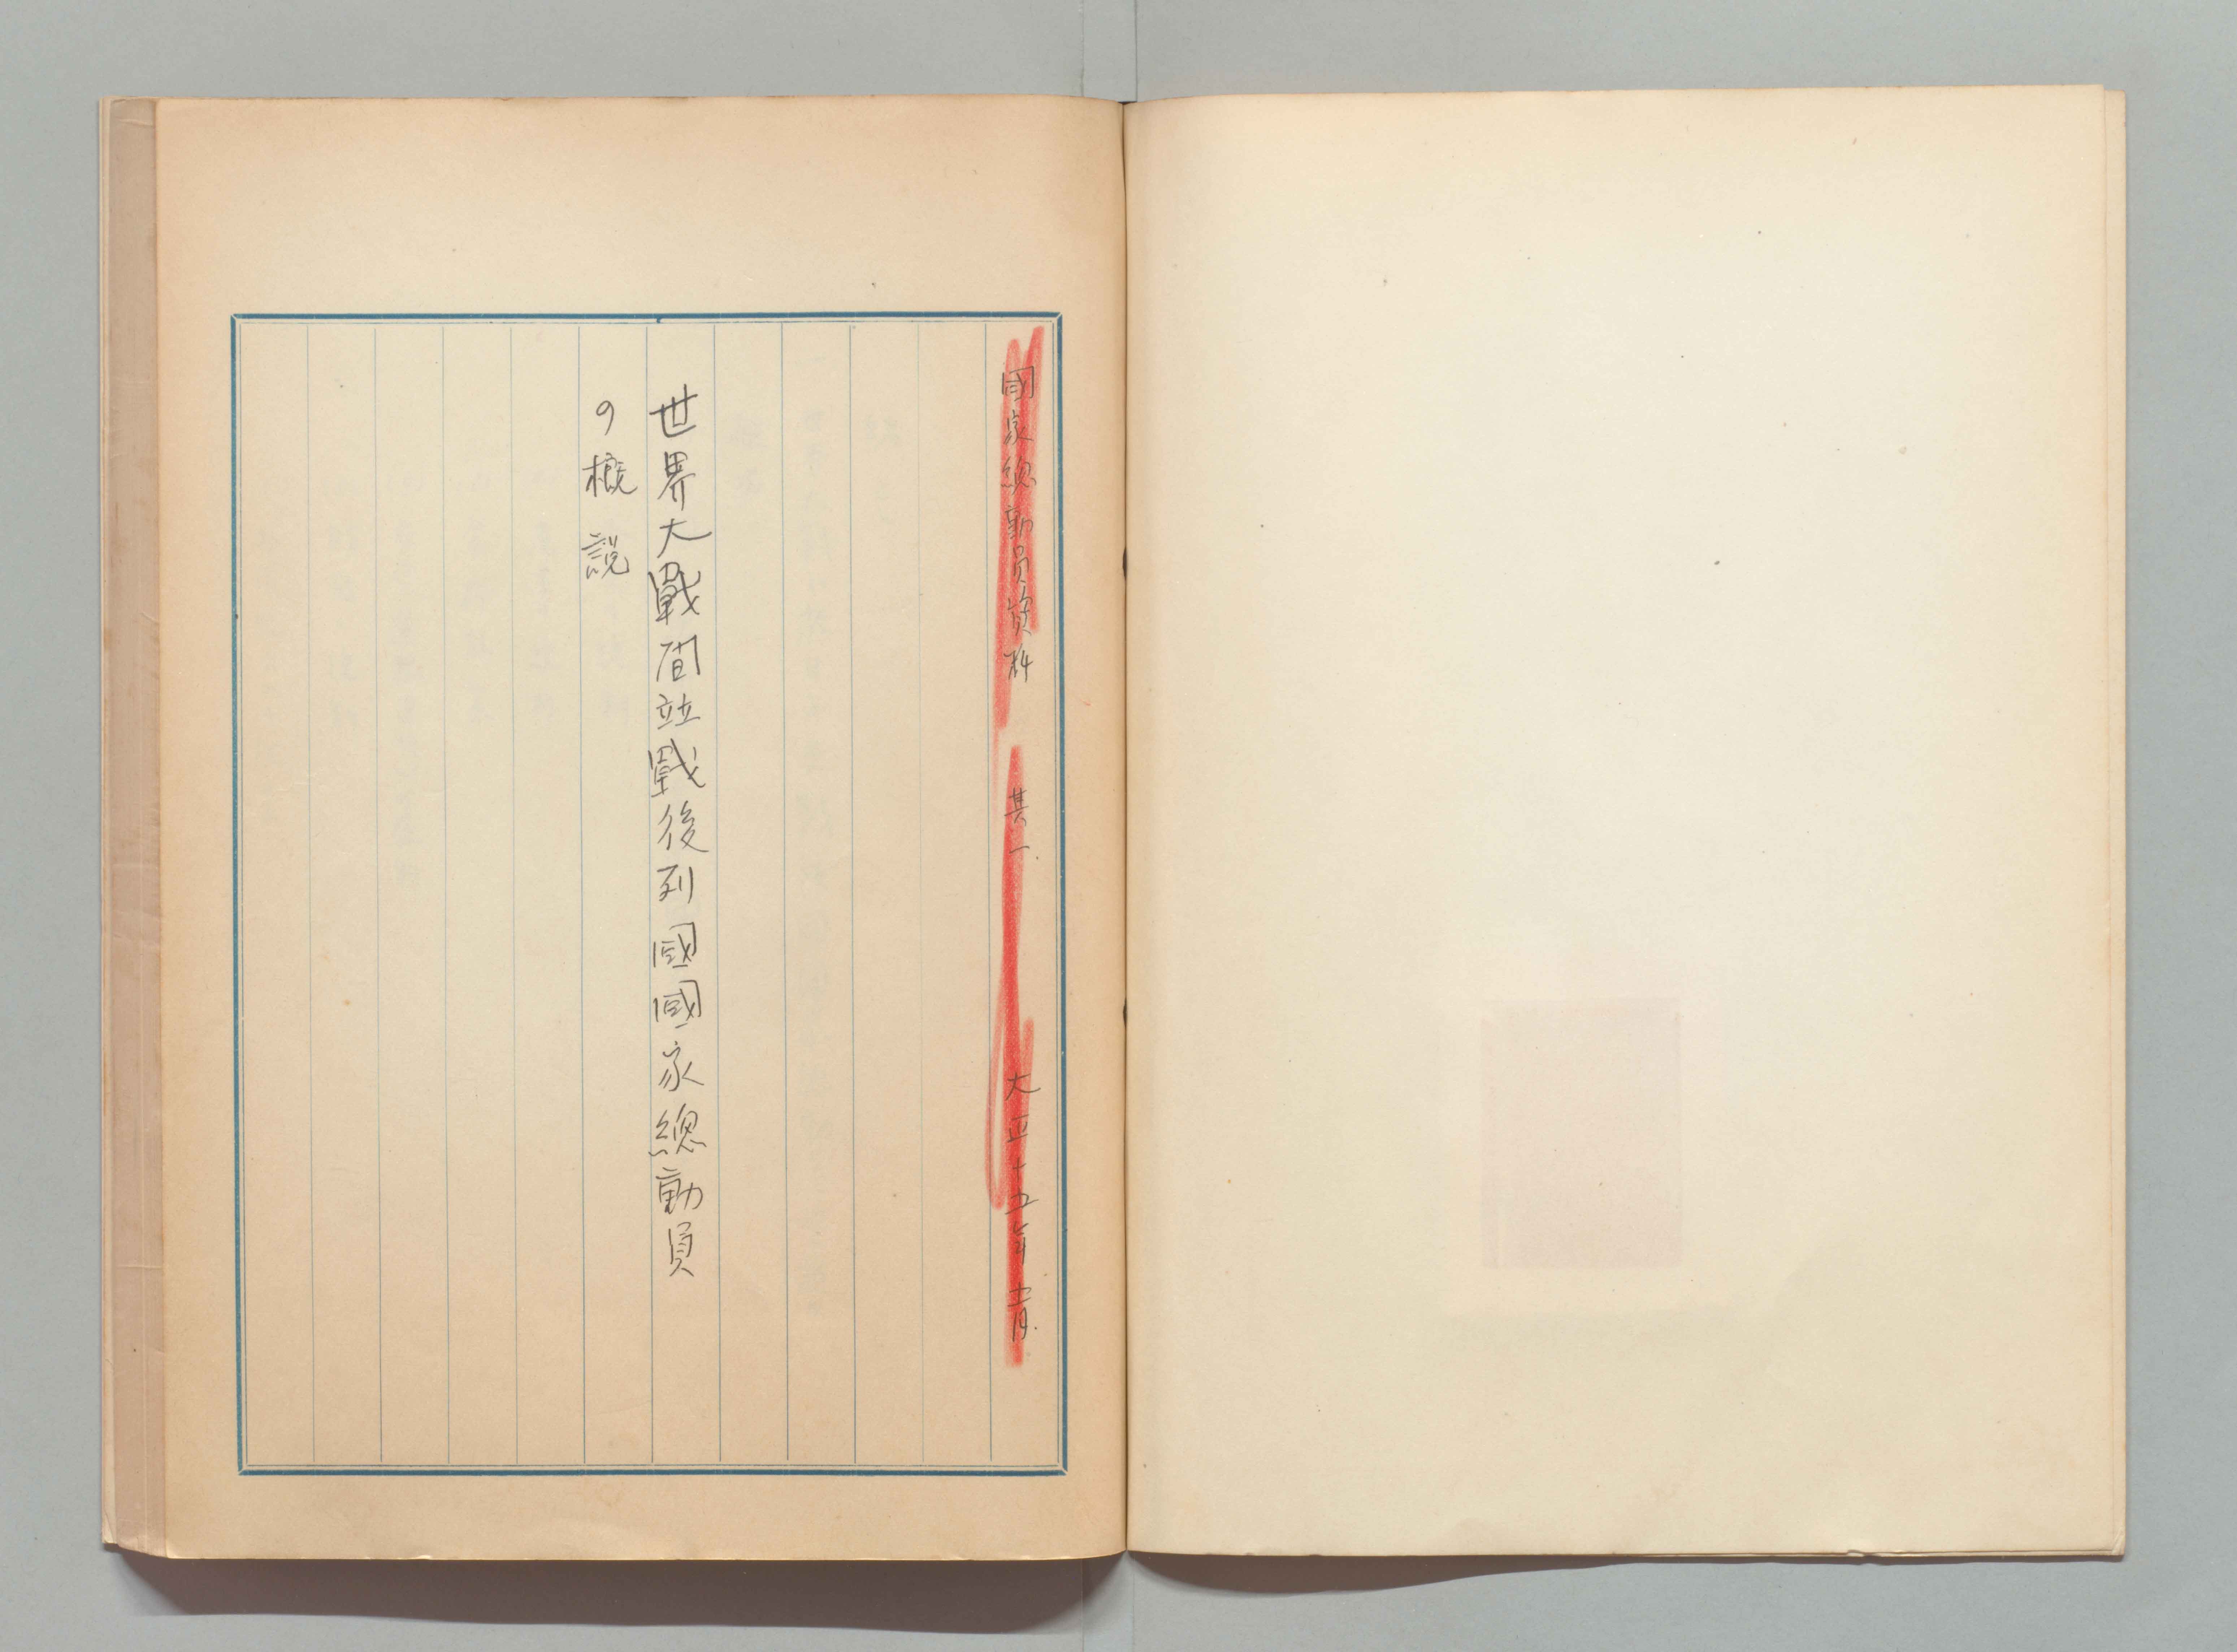 國家總動員資料　其一.　大正十五年十二月.
世界大戰間並戰後列國國家總動員
の概説